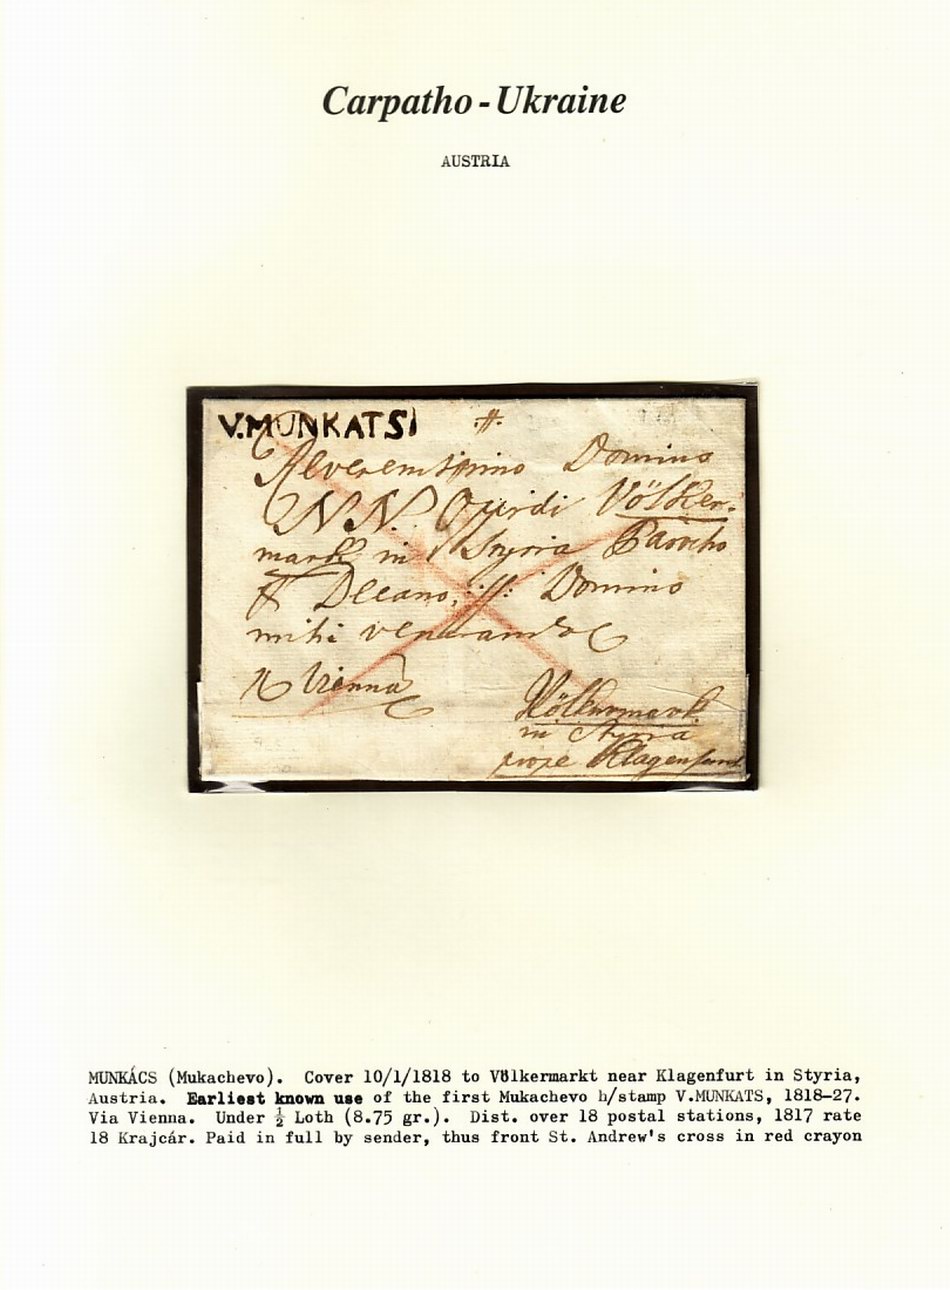 Carpatho - Ukraine
AUSTRIA
V.MUNKATSI
Domino
N. N. Völker-
mark in Styria Parocho
Domino
mihi
Vienna
Völkermark
in Styria
prope Klagenfurt
MUNKÁCS (Mukachevo). Cover 10/1/1818 to Völkermarkt near Klagenfurt in Styria,
Austria. Earliest known use of the first Mukachevo h/stamp V.MUNKATS, 1818-27.
Via Vienna. Under ½ Loth (8.75 gr.). Dist. over 18 postal stations, 1817 rate
18 Krajcár. Paid in full by sender, thus front St. Andrew's cross in red crayon